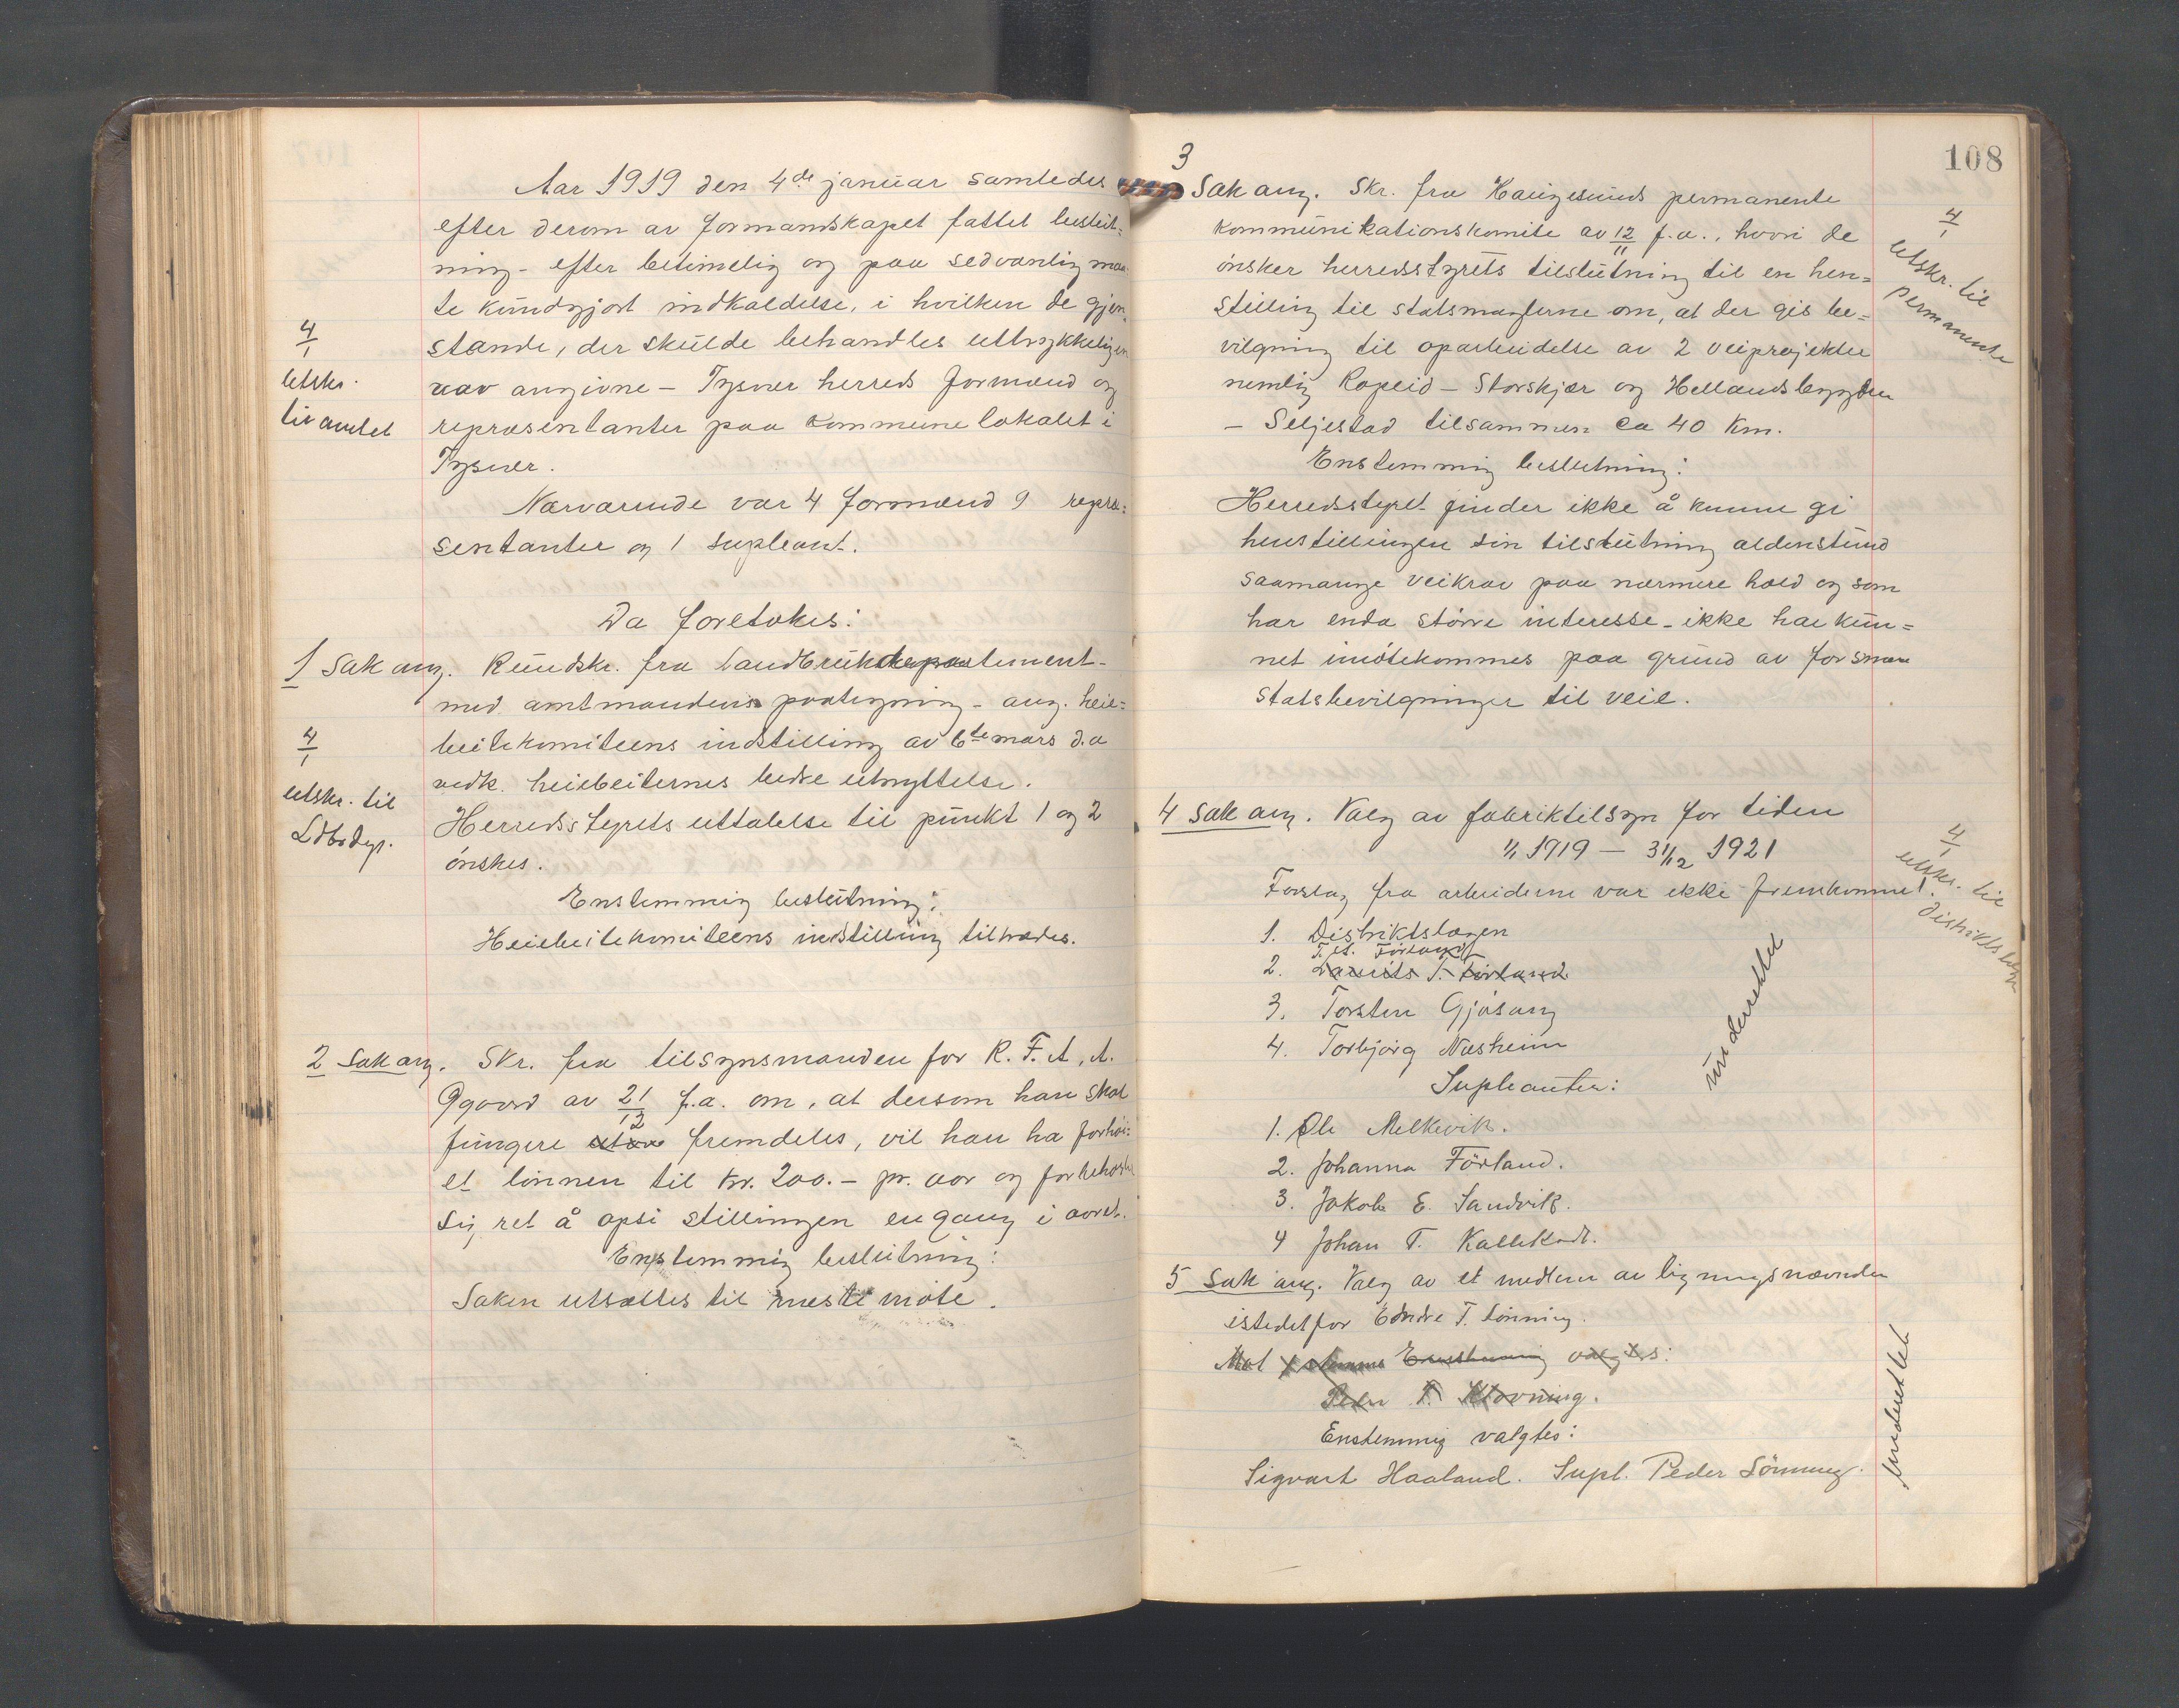 Aar 1919 den 4de januar samledes
efter derom av formandskapet fattet beslut-
ning - efter betimelig og paa sedvanlig maa-
te kundgjort indkaldelse, i hvilken de gjen-
stande, der skulde behandles uttrykkeligen
var angivne - Tysvær herreds formænd og
repræsentanter paa kommunelokalet i
Tysvær.
Nærværende var 4 formænd 9 repræ-
sentanter og 1 supleant.
4/1
Utskr.
til amtet
Da foretokes:
1 Sak ang. Rundskr. fra Landbruksdepartement-
med amtmandens paategning - ang. hei-
beitekomiteens indstilling av 6te mars d.a
vedk. heibeiternes bedre utnyttelse.
Herredsstyrets uttalelse til punkt 1 og 2
ønskes.
4/1
utskr. til
Ldbrdep.
Enstemmig beslutning:
Heiebeitekomiteens indstilling tiltrædes.
2 Sak ang. Skr. fra tilsynsmanden for R. F. A, A.
Qgaard av 21/12 f.a. om, at dersom han skal
fungere fremdeles, vil han ha forhøi-
et lønnen til kr. 200.- pr. aar og forbeholde
sig ret å opsi stillingen engang i aaret.
Enstemmig beslutning:
Saken utsættes til næste møte.
108
3
Sak ang. Skr. fra Haugesunds permanente
kommunikationskomite av 12/11 f.a., hvori de
ønsker herredsstyrets tilslutning til en hen-
stilling til statsmagterne om, at der gis be-
vilgning til oparbeidelse av 2 veiprojekter
nemlig Ropeid - Storskjær og Hellandsbygden
- Seljestad tilsammen ca 40 km.
4/1
utskr. til
permanente
Enstemmig beslutning:
Herredsstyret finder ikke å kunne gi
henstillingen sin tilslutning aldenstund
saamange veikrav paa nærmere hold og som
har enda større interesse - ikke har kun-
net imøtekommes paa grund av for smaa
statsbevilgninger til veie.
4 Sak ang. Valg av fabriktilsyn for tiden
1/1 1919 - 31/12 1921
Forslag fra arbeiderne var ikke fremkommet.
4/1
utskr. til
distriktslægen
1. Distriktslægen
T. A. Førland
2. Daniels T. Førland
3. Torsten Gjøsang
4. Torbjørg Næsheim
underrettet
Supleanter:
1. Ole Melkevik.
2. Johanna Førland.
3. Jakob E. Sandvik.
4 Johan T. Kallekodt.
5 Sak ang. Valg av et medlem av ligningsnævnden
istedetfor Endre T. Lønning.
Mot 1 stemme Enstemmig valgtes:
Peder T. Klovning.
Enstemmig valgtes:
Sigvart Haaland. Supl. Peder Lønning.
Underrettet